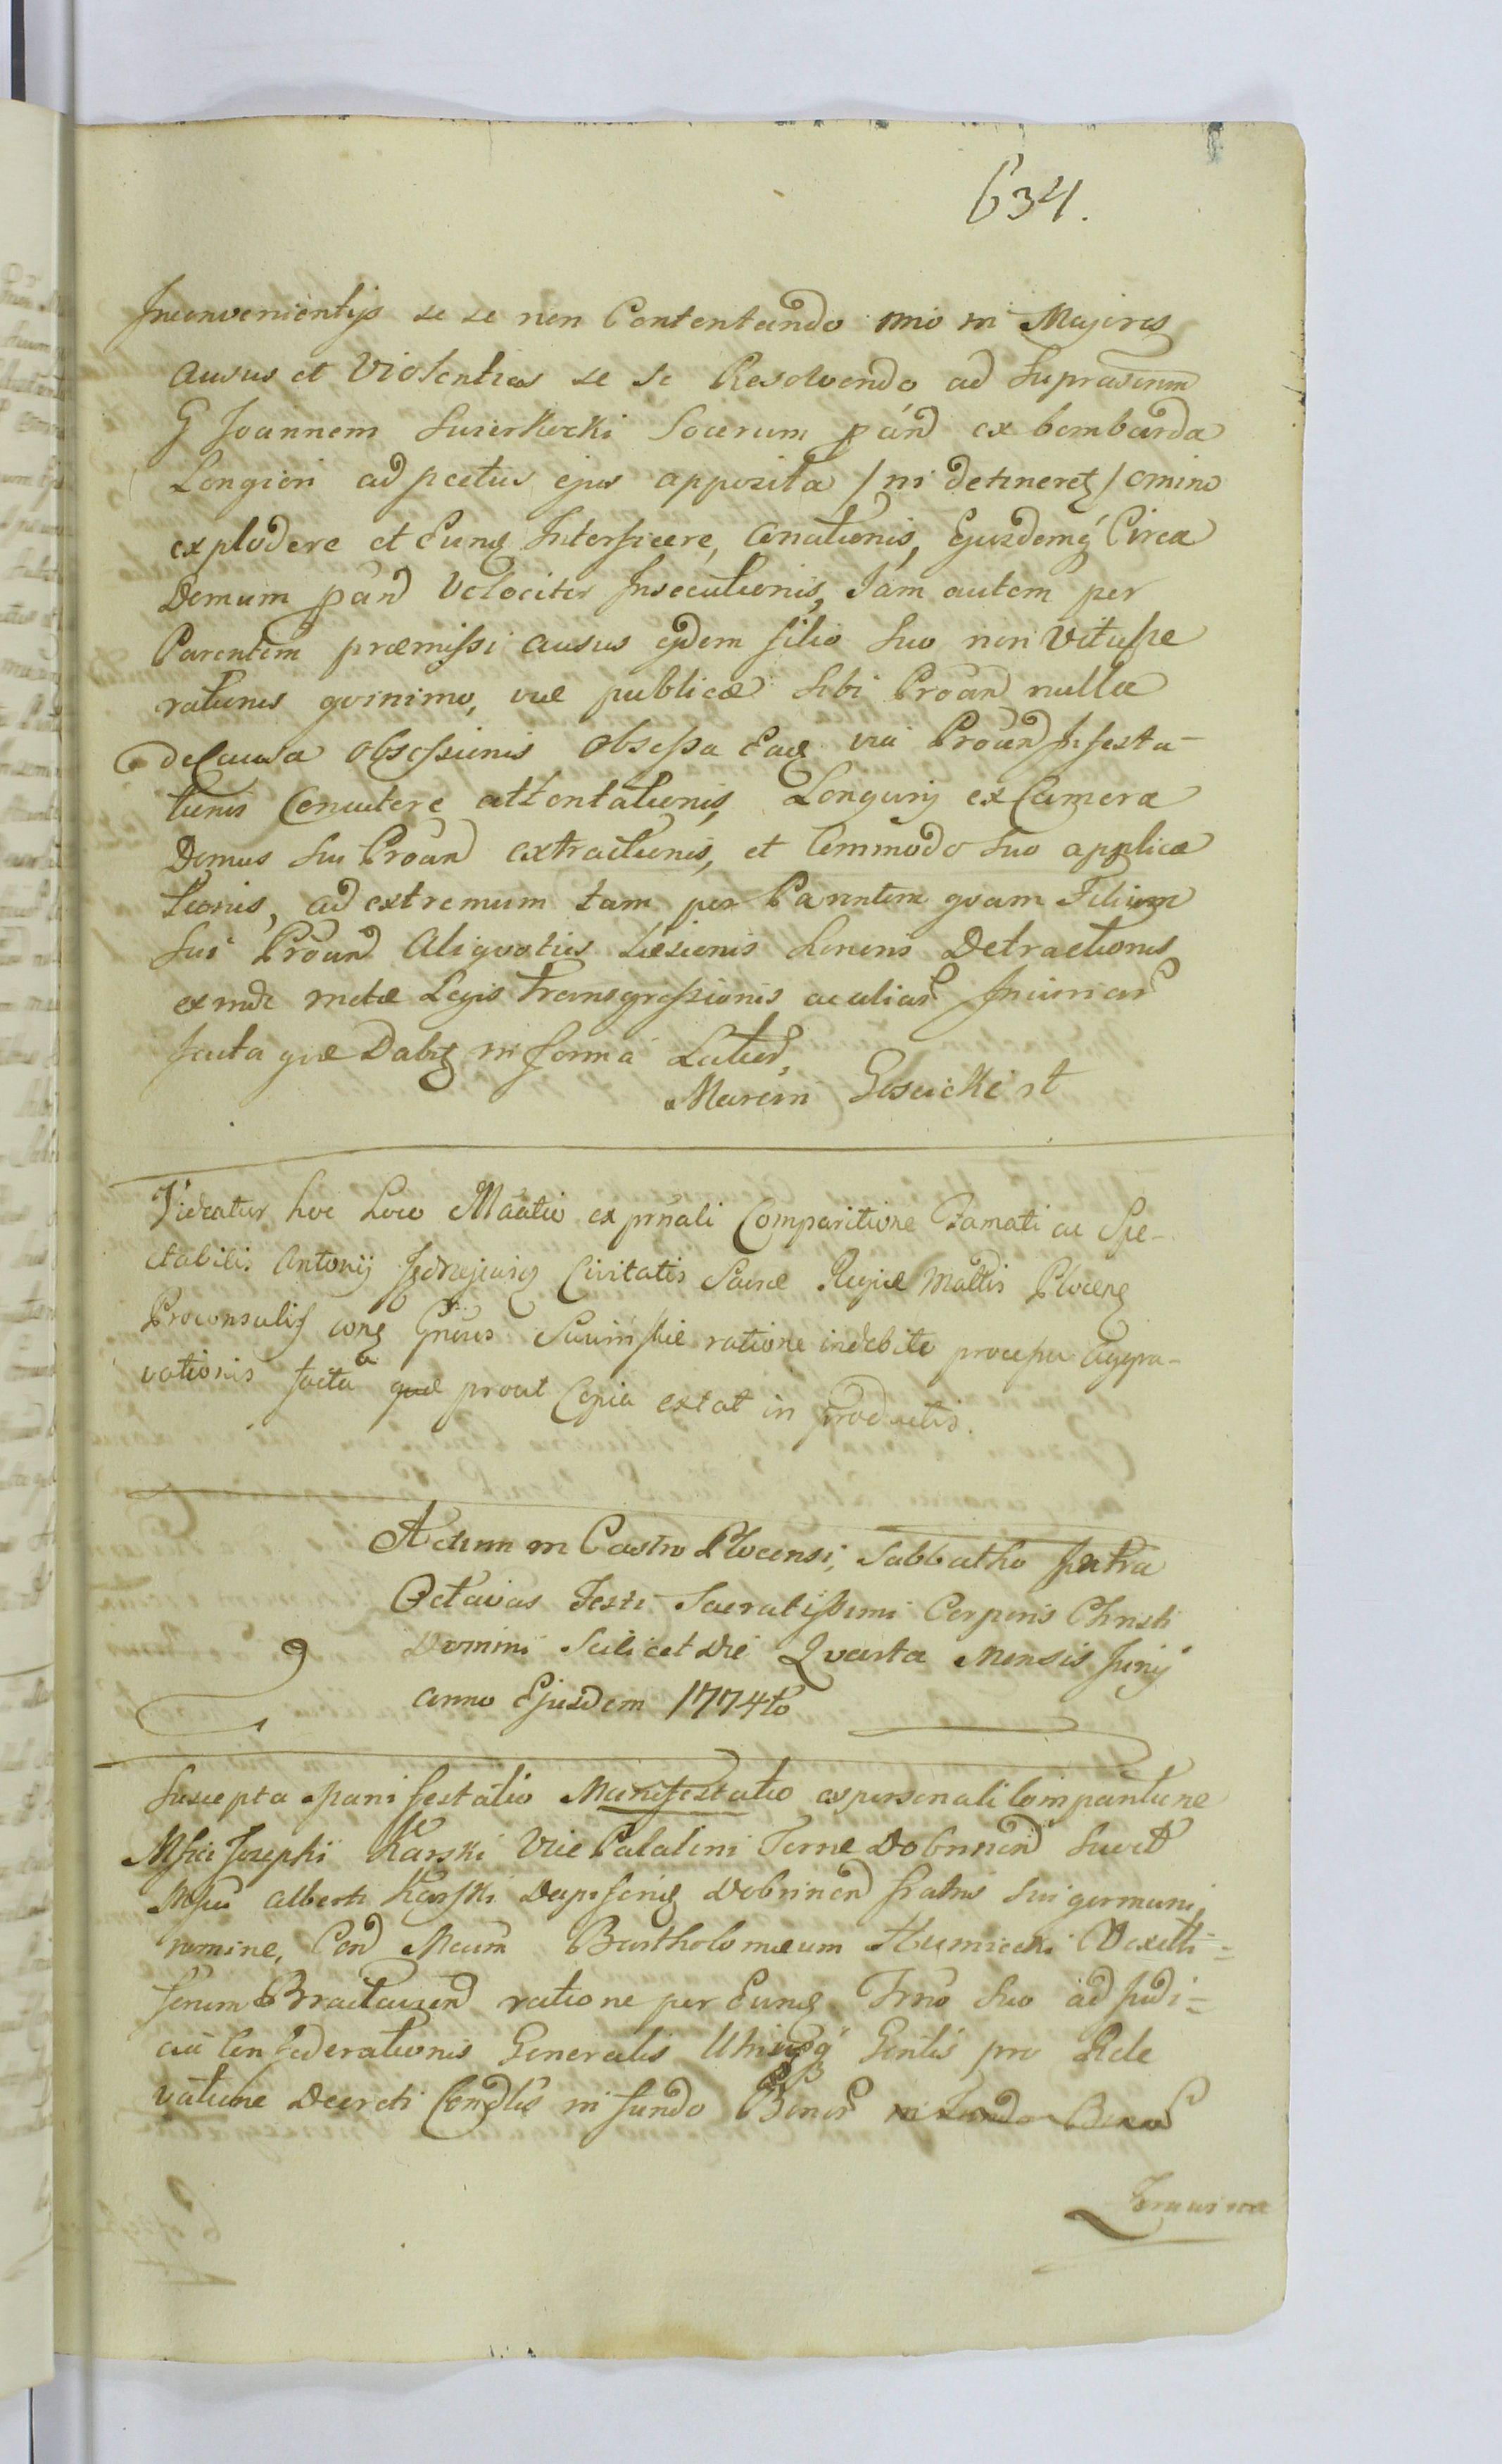 634.
Inconvenientijs se se non Contentando imo in Majores
ausus et Violentias se se Resolvendo ad supra
G Joannem Socerum pand ex bombarda
Longiori ad pectus ejus apposita / ni detineretz / omino
explodere et Eunq Interficere, Conationis, Ejusdemq Circa
Domum pand Velociter Insecutionis, Jam autem per
Parentem præmissi ausus ejdem filio suo non Vitupe
rationis qvinimo, viæ publicæ sibi Proand nulla
de Causa obsessionis obsessa Eaq via Proand Infesta-
tionis attentationis, Longurij ex Camera
Domus sui Proand extractionis, et Commodo suo applica
tionis, ad extremum tam per Parentem qvam Filium
sui Proand Aliqvoties Læsionis Honoris Detractionis
exinde metæ Legis Transgressionis ac aliar Injuriar
facta qvæ Dabitz in forma Latiod,
Marcin Gosicki
Videatur hoc Loco Maatio ex prnali Comparitione Famati ac Spe-
ctabilis Antonij Civitatis Sacræ Regiæ Mattis Plocenq
Proconsulis conq Gneus ratione indebite processu Aggra-
vationis facta quæ prout Copia extat in Productis.
Actum in Castro Plocensi, Sabbatho Intra
Octavas Festi Sacratissimi Corporis Christi
Domini Scilicet Die Qvarta Mensis Junij
anno Ejusdem 1774to
Suscepta Manifestatio ex personali Comparitione
Mfici Josephi Karski Vice Palatini Terræ Dobrinen suo et
Mfici Alberti Karski Dapiferiq Dobrinen fratris sui germani,
nomine, Con Mcum Bartholomæum Vexilli=
ferum Braclavien ratione per Eunq Trno suo ad Judi=
cia Confederationis Generalis Utriusq Gentis pro Rele
vatione Decreti Condtis in fundo Bonor in fundo Bonor